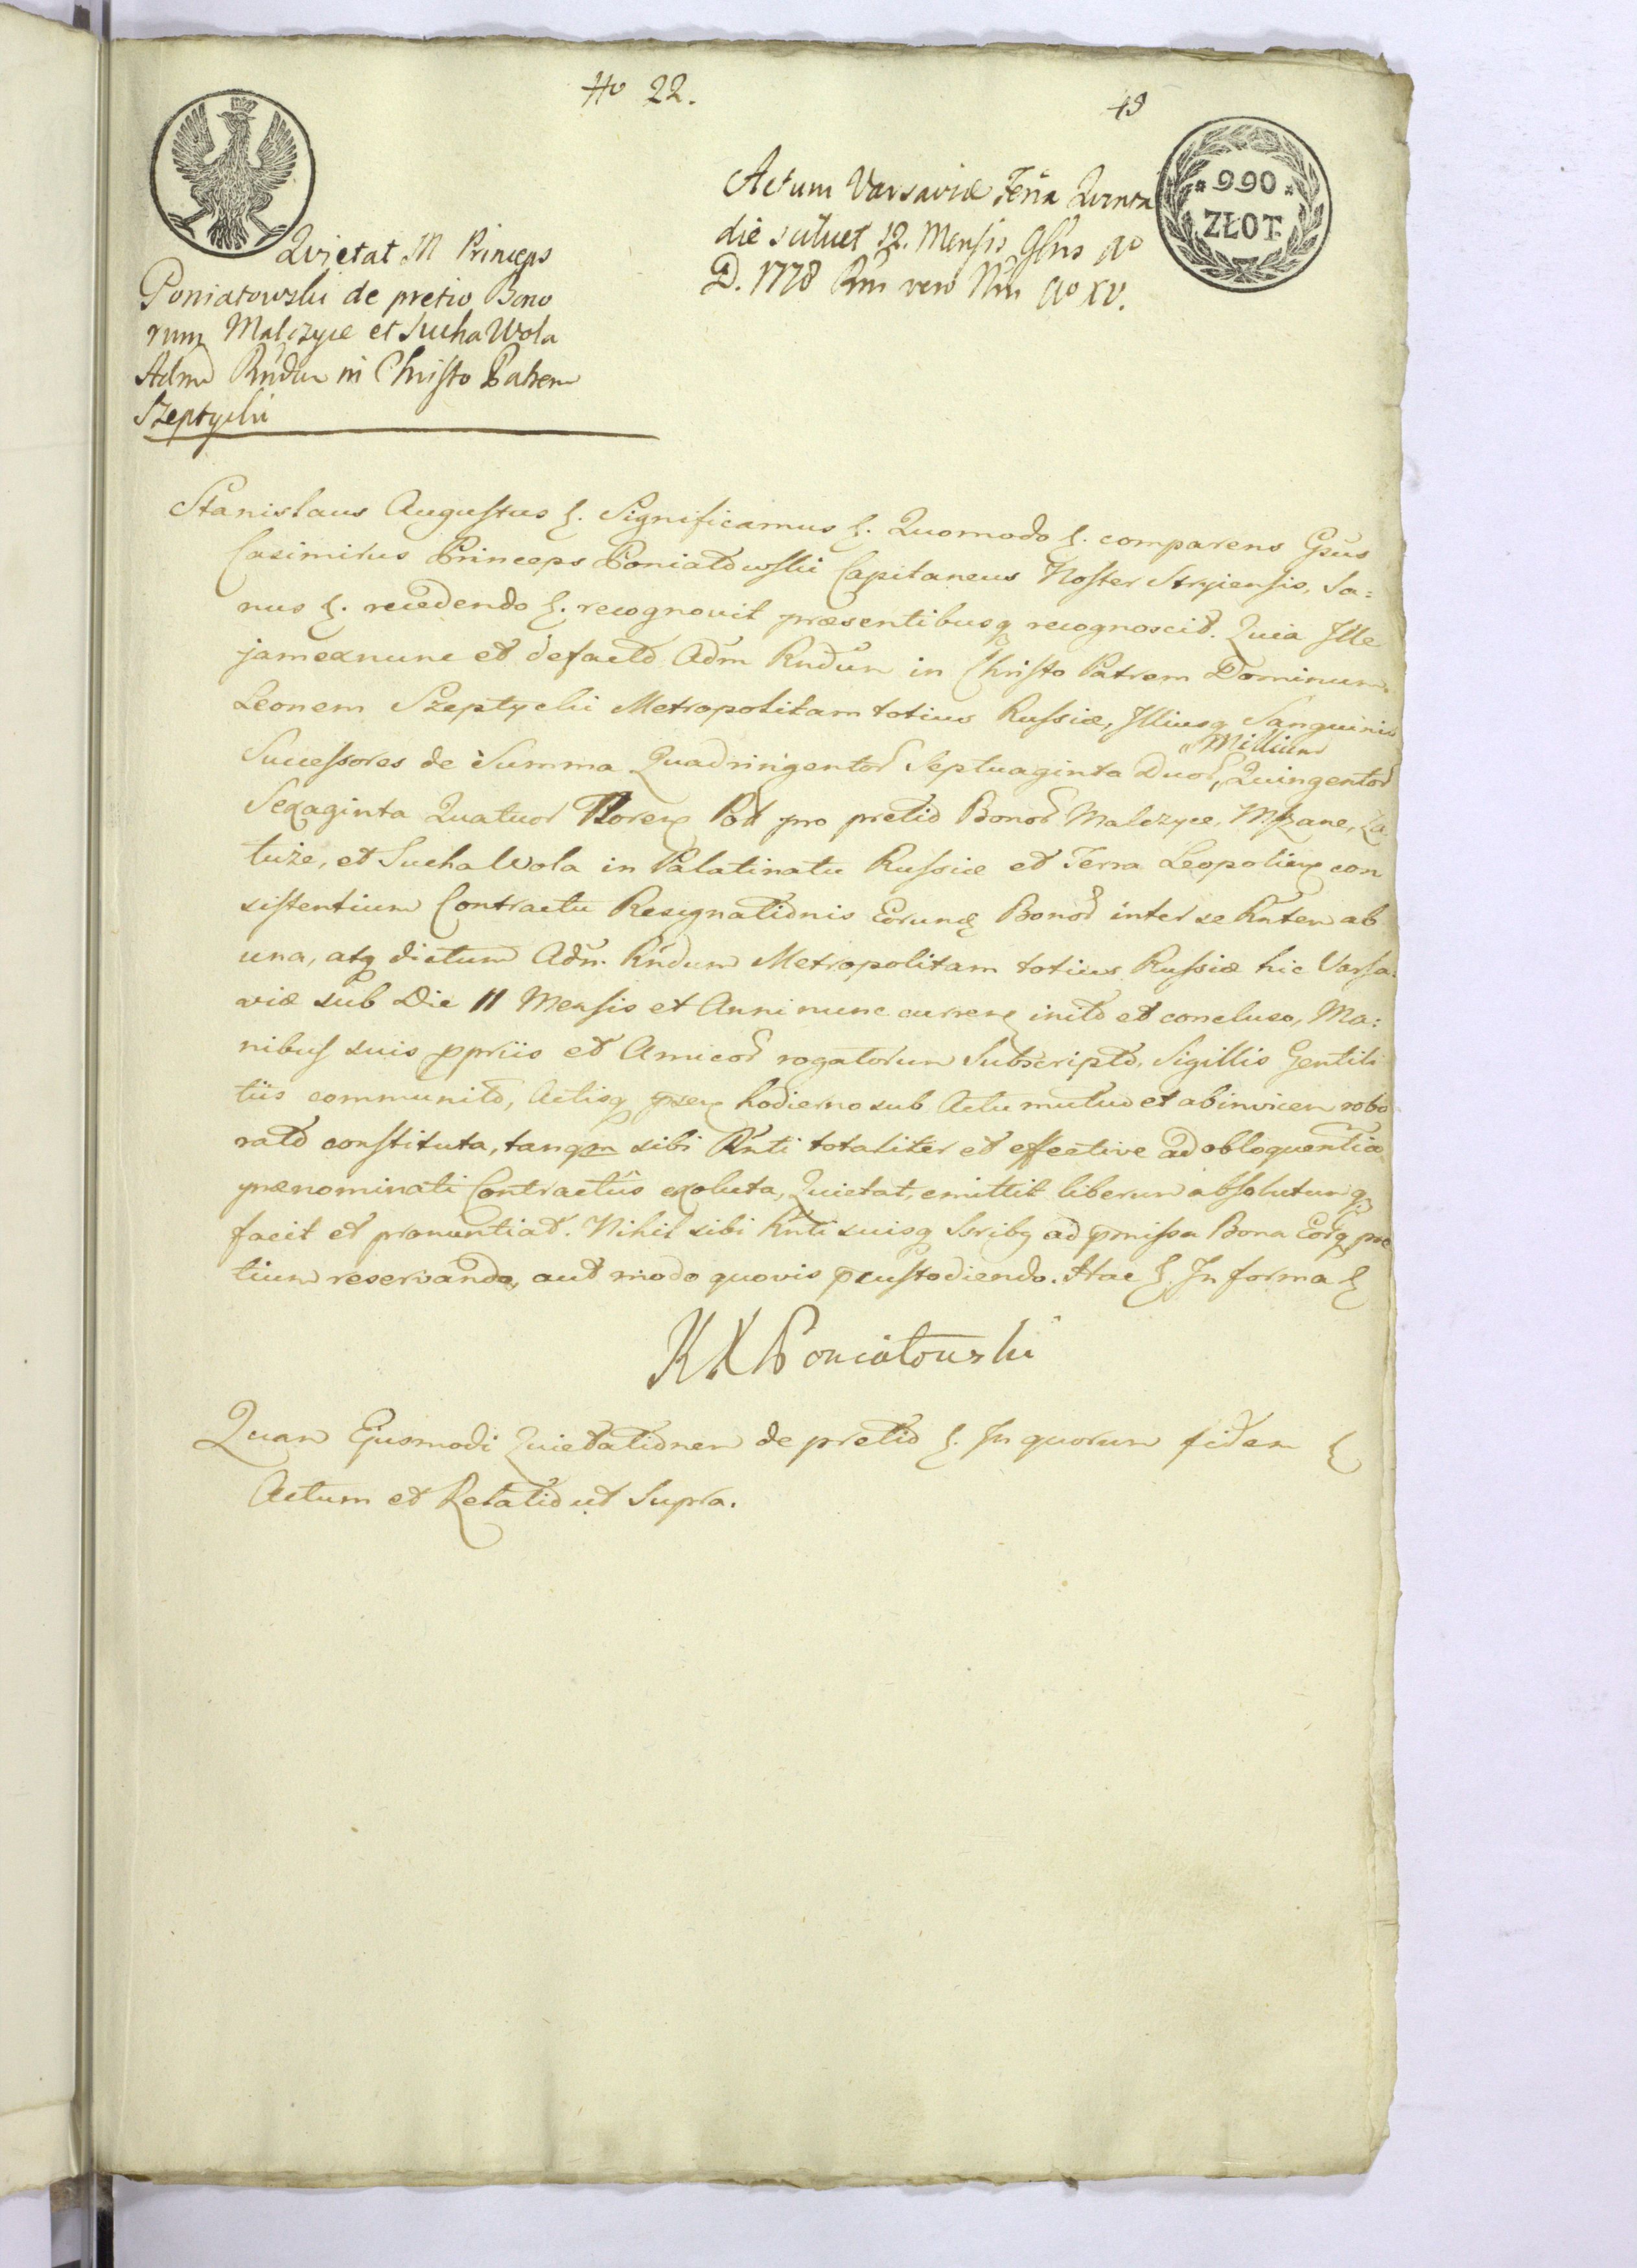 No 22.
49
990
ZŁOT
Actum Varsaviæ Feria Quinta
die scilicet 12. Mensis 9bris Ao
D. 1778 Rni vero Nri Ao XV.
Quietat M Princeps
Poniatowski de pretio Bono
rum Malczyce et Sucha Wola
Adm Rndum in Christo Patrem
Szeptycki
Stanislaus Augustus &. Significamus &. Quomodo &. comparens Gsus
Casimirus Princeps Poniatowski Capitaneus Noster Stryiensis, Sa=
nus &. recedendo &. recognovit præsentibusq recognoscit. Quia Ille
jam exnunc et defacto Adm Rndum in Christo Patrem Dominum
Leonem Szeptycki Metropolitam totius Russiæ, Illiusq Sanguinis
Successores de Summa Quadringentor Septuaginta Duor Millium Quingentor
Sexaginta Quatuor Floren Pol pro pretio Bonor Malczyce, Mszane, Za
tuże, et Sucha Wola in Palatinatu Russiæ et Terra Leopolien con
sistentium Contractu Resignationis Eorund Bonor inter se Rntem ab
una, atq dictum Adm. Rndum Metropolitam totius Russiæ hic Varsa
viæ sub Die 11 Mensis et Anni nunc curren inito et concluso, Ma:
nibus suis ppriis et Amicor rogatorum Subscripto, Sigillis Gentili
tiis communito, Actisq psen hodierno sub Actu mutuo et abinvicem robo
rato constituta, tanqm sibi Rnti totaliter et effective ad obloquentia
prænominati Contractûs exoluta, Quietat, emittit liberum absolutumq
facit et pronuntiat. Nihil sibi Rnti suisq Ssribq ad pmissa Bona Eorq pre
tium reservando, aut modo quovis pcustodiendo. Hac &. In forma &
K X Poniatowski
Quam Ejusmodi Quietationem de pretio &. In quorum fidem &
Actum et Relatio ut Supra.